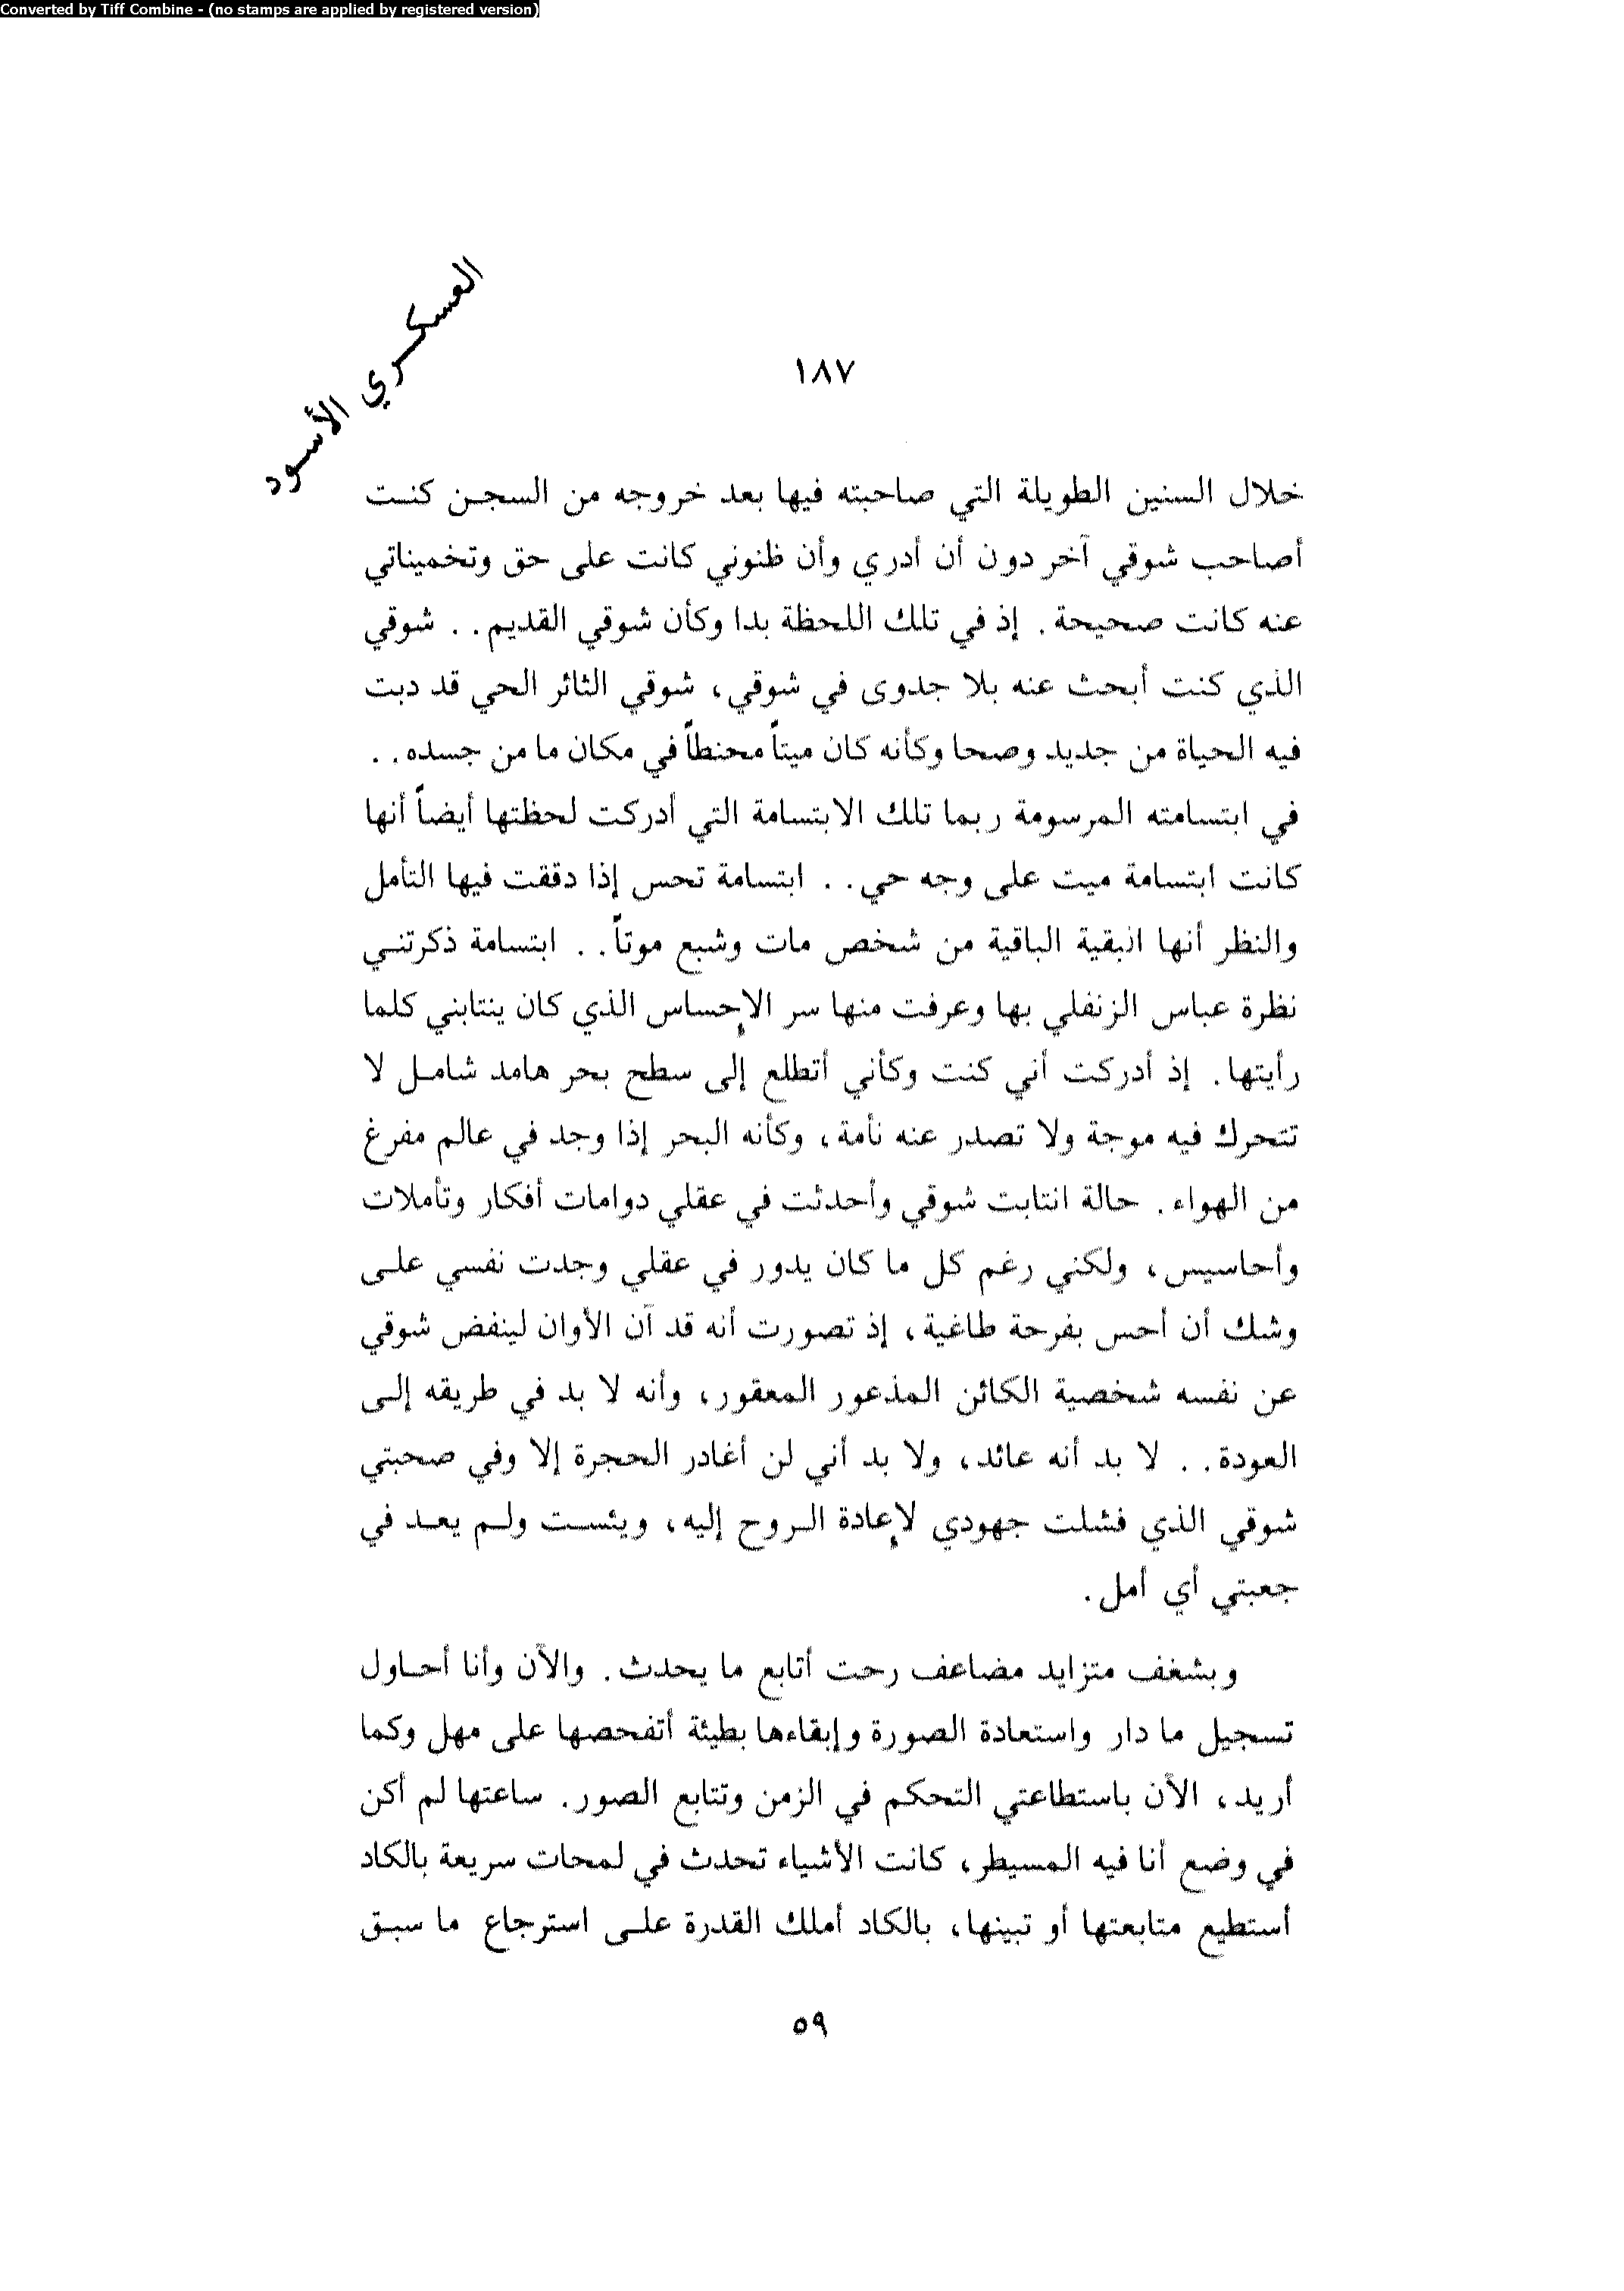 Converted by Tiff Combine - (no stamps are applied by registered version)
العسكري الأسود
١٨٧
خلال السنين الطويلة التي صاحبته فيها بعد خروجه من السجن كنت
أصاحب شوقي آخر دون أن أدري وأن ظنوني كانت على حق وتخميناتي
عنه كانت صحيحة. إذ في تلك اللحظة بدا وكأن شوقي القديم.. شوقي
الذي كنت أبحث عنه بلا جدوى في شوقي، شوقي الثائر الحي قد دبت
فيه الحياة من جديد وصحا وكأنه كان ميتاً محنطاً في مكان ما من جسده..
في ابتسامته المرسومة ربما تلك الابتسامة التي أدركت لحظتها أيضاً أنها
كانت ابتسامة ميت على وجه حي.. ابتسامة تحس إذا دققت فيها التأمل
والنظر أنها البقية الباقية من شخص مات وشبع موتاً.. ابتسامة ذكرتني
نظرة عباس الزنفلي بها وعرفت منها سر الإحساس الذي كان ينتابني كلما
رأيتها. إذ أدركت أني كنت وكأني أتطلع إلى سطح بحر هامد شامل لا
تتحرك فيه موجة ولا تصدر عنه نأمة، وكأنه البحر إذا وجد في عالم مفرغ
من الهواء. حالة انتابت شوقي وأحدثت في عقلي دوامات أفكار وتأملات
وأحاسيس، ولكني رغم كل ما كان يدور في عقلي وجدت نفسي على
وشك أن أحس بفرحة طاغية، إذ تصورت أنه قد آن الأوان لينفض شوقي
عن نفسه شخصية الكائن المذعور المعقور، وأنه لا بد في طريقه إلى
العودة.. لا بد أنه عائد، ولا بد أني لن أغادر الحجرة إلا وفي صحبتي
شوقي الذي فشلت جهودي لإعادة الروح إليه، ويئست ولم يعد في
جعبتي أي أمل.
وبشغف متزايد مضاعف رحت أتابع ما يحدث. والآن وأنا أحاول
تسجيل ما دار واستعادة الصورة وإبقاءها بطيئة أتفحصها على مهل وكما
أريد، الآن باستطاعتي التحكم في الزمن وتتابع الصور. ساعتها لم أكن
في وضع أنا فيه المسيطر، كانت الأشياء تحدث في لمحات سريعة بالكاد
أستطيع متابعتها أو تبينها، بالكاد أملك القدرة على استرجاع ما سبق
٥٩